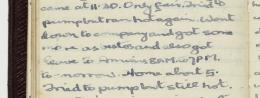 came at 11.30. Only fair. Tried to
pump but ran hot again. Went
down to company and got some
more as and also got
leave to 8 A.M. to 7 P.M.
to-morrow. Home about 5.
Tried to pump but still hot.